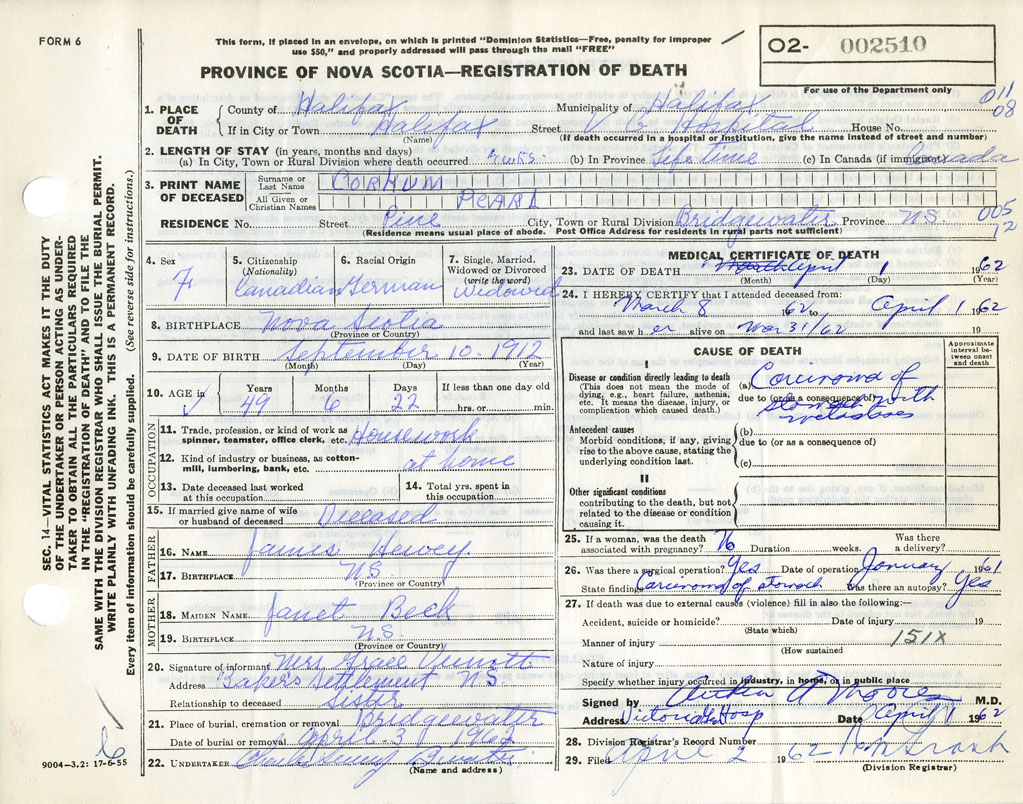 FORM 6
This form, if placed in an envelope, on which is printed "Dominion Statistics—Free, penalty for improper
use $50," and properly addressed will pass through the mail "FREE"
PROVINCE OF NOVA SCOTIA—REGISTRATION OF DEATH
O2- 002510
For use of the Department only
011
08
1. PLACE OF DEATH
County of Halifax Municipality of Halifax
If in City or Town Halifax Street V. G. Hospital House No.
(Name) (If death occurred in a hospital or institution, give the name instead of street and number)
2. LENGTH OF STAY (in years, months and days)
(a) In City, Town or Rural Division where death occurred 4 wks. (b) In Province Life time (c) In Canada (if immigrant) Canada
3. PRINT NAME OF DECEASED
Surname or Last Name CORKUM
All Given or Christian Names PEARL
RESIDENCE No. Street Pine City, Town or Rural Division Bridgewater Province N.S.
005
12
(Residence means usual place of abode. Post Office Address for residents in rural parts not sufficient)
4. Sex F
5. Citizenship (Nationality) Canadian
6. Racial Origin German
7. Single, Married, Widowed or Divorced (write the word) Widowed
8. BIRTHPLACE Nova Scotia
(Province or Country)
9. DATE OF BIRTH September 10 - 1912
(Month) (Day) (Year)
10. AGE in Years 49 Months 6 Days 22 If less than one day old
hrs. or min.
OCCUPATION
11. Trade, profession, or kind of work as spinner, teamster, office clerk, etc. Housework
12. Kind of industry or business, as cotton-mill, lumbering, bank, etc. at home
13. Date deceased last worked at this occupation
14. Total yrs. spent in this occupation
15. If married give name of wife or husband of deceased Deceased
FATHER
16. NAME James Hewey
17. BIRTHPLACE N.S.
(Province or Country)
MOTHER
18. MAIDEN NAME Janet Beck
19. BIRTHPLACE N.S.
(Province or Country)
20. Signature of informant Mrs Grace
Address Baker's Settlement N S
Relationship to deceased Sister
21. Place of burial, cremation or removal Bridgewater
Date of burial or removal April 3 1962
22. UNDERTAKER
(Name and address)
MEDICAL CERTIFICATE OF DEATH
23. DATE OF DEATH April 1 1962
(Month) (Day) (Year)
24. I HEREBY CERTIFY that I attended deceased from:
March 8 1962 to April 1 1962
and last saw h er alive on Mar 31/62 19
CAUSE OF DEATH
Approximate interval between onset and death
I
Disease or condition directly leading to death
(This does not mean the mode of dying, e.g., heart failure, asthenia, etc. It means the disease, injury, or complication which caused death.)
(a) Carcinoma of
due to (or as a consequence of)
stomach with
metastases
Antecedent causes
Morbid conditions, if any, giving rise to the above cause, stating the underlying condition last.
(b)
due to (or as a consequence of)
(c)
II
Other significant conditions
contributing to the death, but not related to the disease or condition causing it.
25. If a woman, was the death associated with pregnancy? No Duration weeks. Was there a delivery?
26. Was there a surgical operation? Yes Date of operation January 1961
State findings Carcinoma of stomach Was there an autopsy? Yes
27. If death was due to external causes (violence) fill in also the following:—
Accident, suicide or homicide? Date of injury 19
(State which)
Manner of injury 151X
(How sustained
Nature of injury
Specify whether injury occurred in industry, in home, or in public place
Signed by M.D.
Address Victoria Hosp Date April 1 1962
28. Division Registrar's Record Number
29. Filed April 2 1962
(Division Registrar)
SEC. 14—VITAL STATISTICS ACT MAKES IT THE DUTY
OF THE UNDERTAKER OR PERSON ACTING AS UNDER-
TAKER TO OBTAIN ALL THE PARTICULARS REQUIRED
IN THE "REGISTRATION OF DEATH" AND TO FILE THE
SAME WITH THE DIVISION REGISTRAR WHO SHALL ISSUE THE BURIAL PERMIT.
WRITE PLAINLY WITH UNFADING INK. THIS IS A PERMANENT RECORD.
Every item of information should be carefully supplied. (See reverse side for instructions.)
9004—3.2: 17-6-55